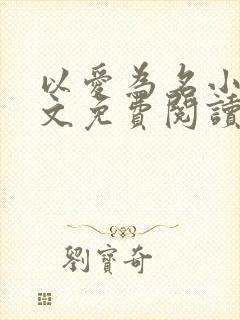 以愛為名小
文免費閱讀
劉寶奇